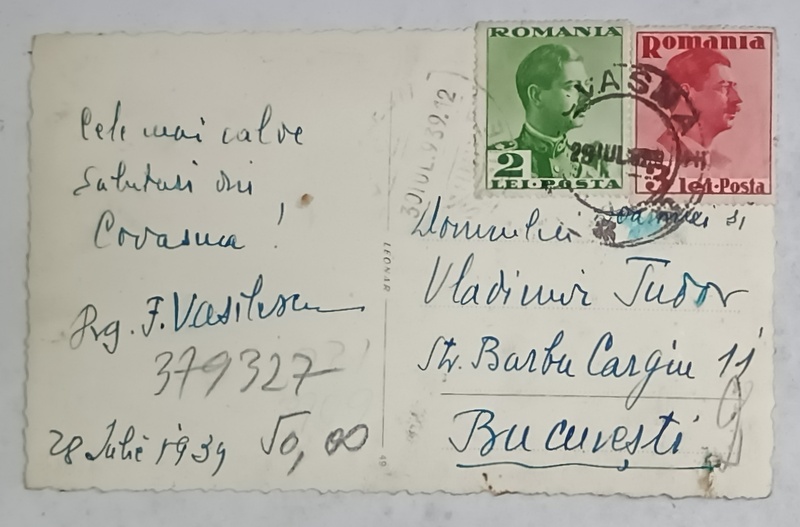 Cele mai calde
Salutari din
Covasna!
Prg. F. Vasilescu
379327
28 Iulie 1939 50,00
30 IUL. 939. 12
LEONAR
ROMANIA
2
LEI·POSTA
Romania
3 lei·Posta
VASNA
29 IUL
Domnului Doamnei si
Vladimir Tudor
Str. Barbu Cargiu 11
București